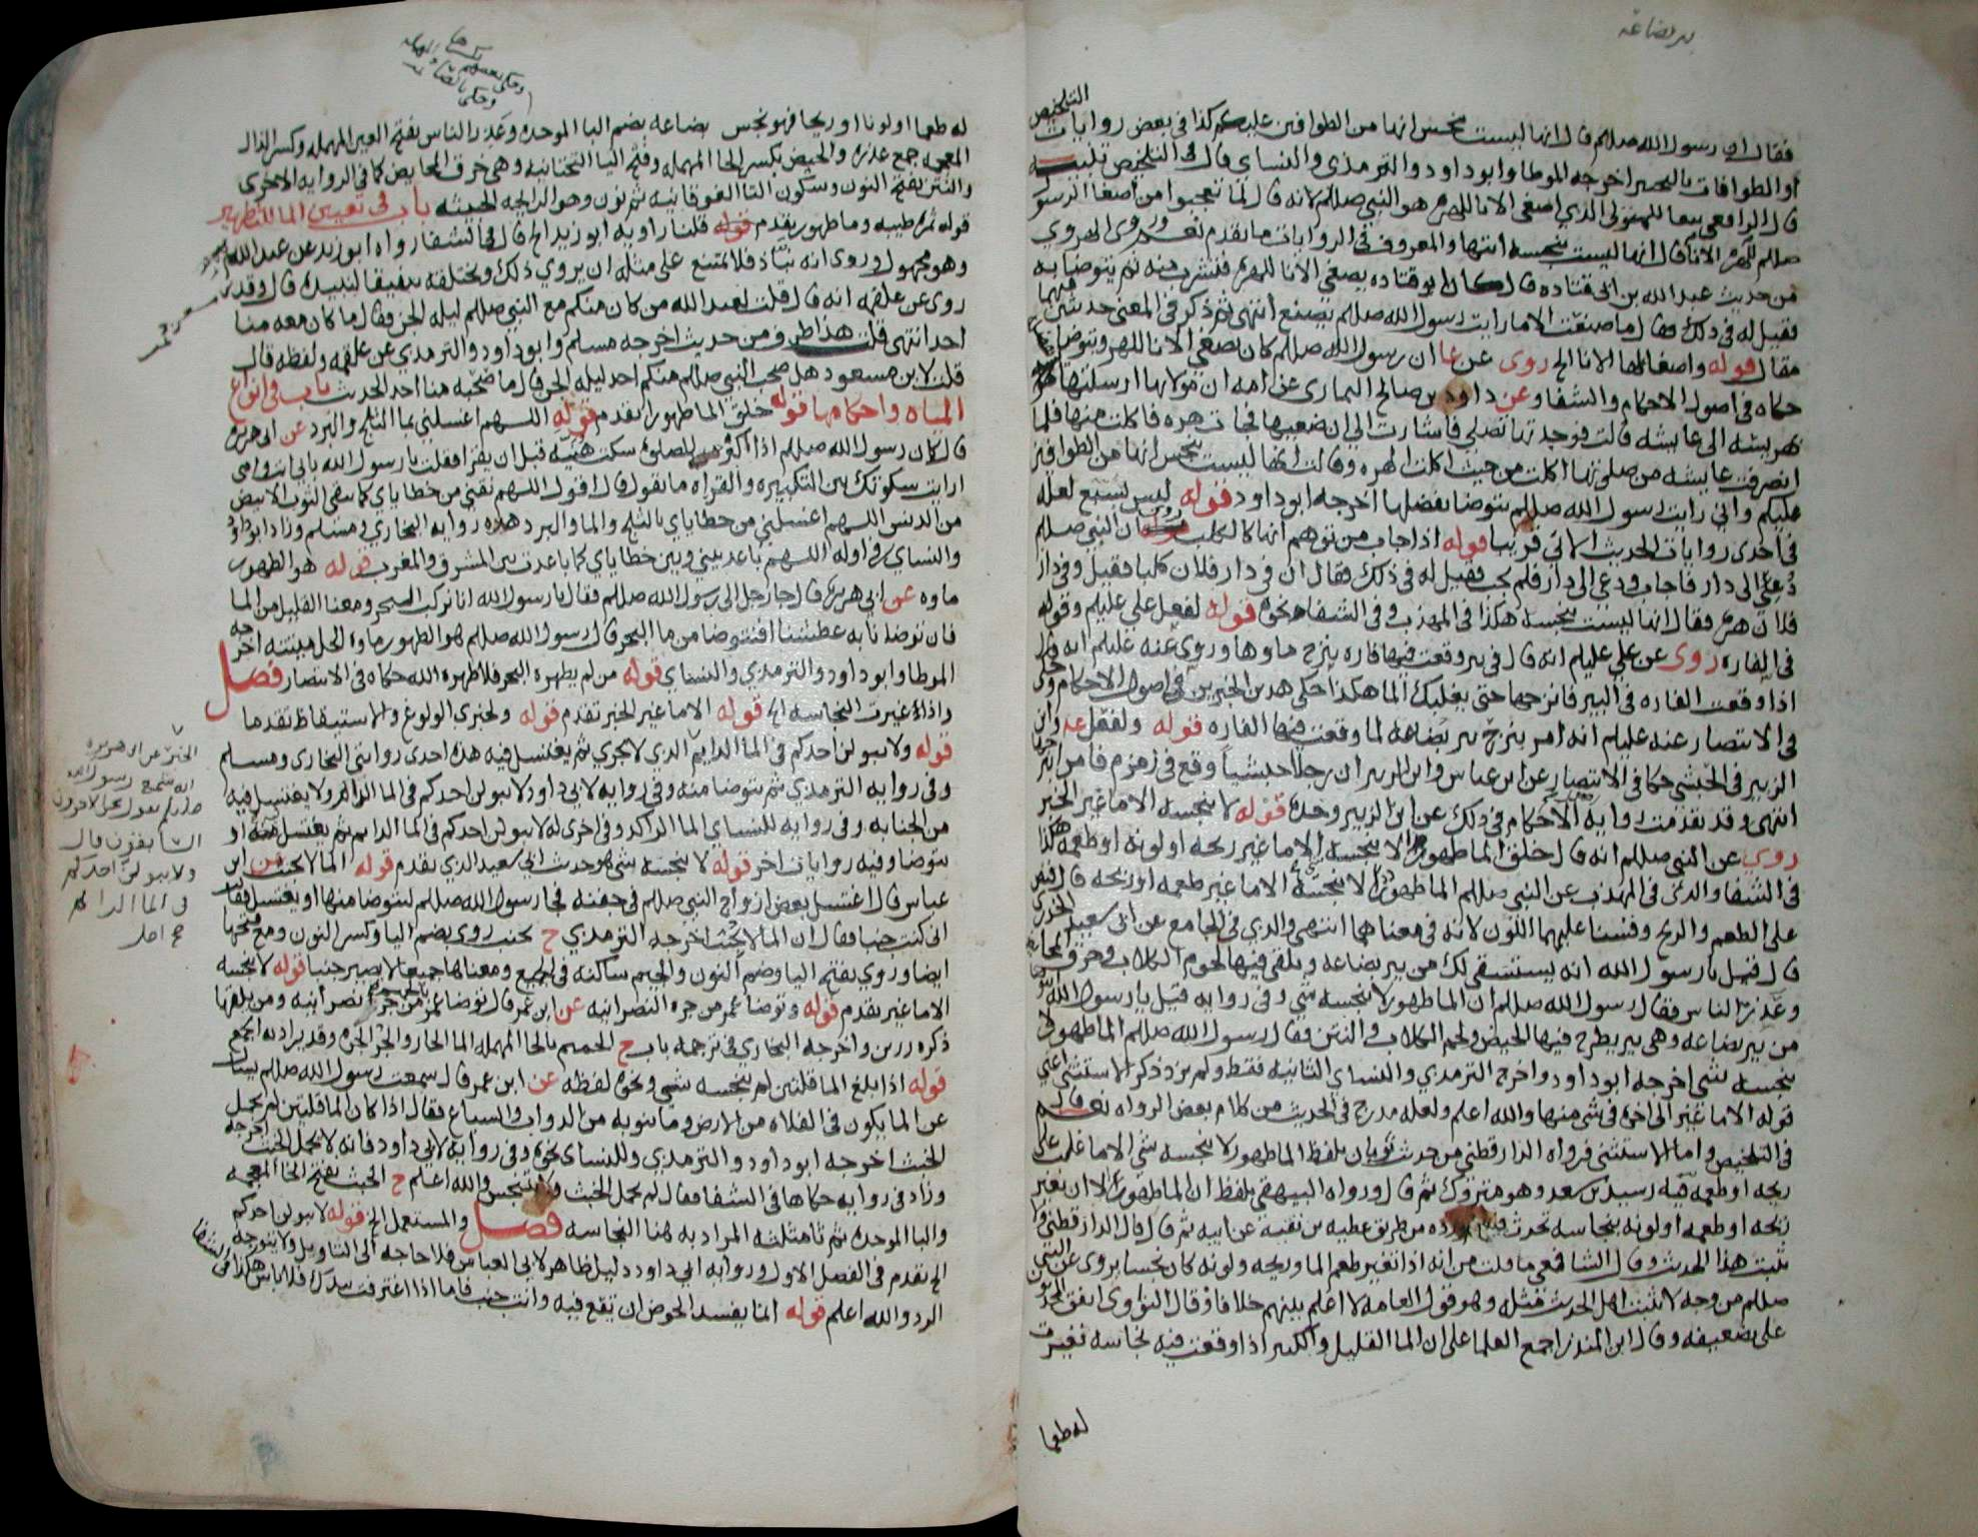 بير بضاعة
فقال ان رسول الله صللم قال انها ليست بنجس انها من الطوافين عليكم كذا في بعض روايات
التلخيص
او الطوافات بالتخيير اخرجه الموطا وابو داود والترمذي والنساي قال في التلخيص تنبيه
قال الرافعي الذي اصغى الانا للهره هو النبي صللم لانه قال لما تعجبوا من اصغا الرسول
صللم للهره الانا قال انها ليست بنجسه انتهى والمعروف في الروايات ما تقدم نعم وروي
من حديث عبد الله بن ابي قتاده قال كان ابو قتاده يصغي الانا للهره فتشرب منه ثم يتوضا به
فقيل له في ذلك فقال ما صنعت الا ما رايت رسول الله صللم يصنع انتهى ثم ذكر في المعنى حديثين
فقال قوله واصغا لها الانا الخ روى عن عا ان رسول الله صللم كان يصغي الانا للهر ويتوضا
حكاه في اصول الاحكام والشفا وعن داود بن صالح التمار عن امه ان مولاتها ارسلتها
بهريسه الى عايشه قالت فوجدتها تصلي فاشارت الي ان ضعيها فجات هره فاكلت منها فلما
انصرفت عايشه من صلاتها اكلت من حيث اكلت الهره وقالت انها ليست بنجس انها من الطوافين
عليكم واني رايت رسول الله صللم يتوضا بفضلها اخرجه ابو داود قوله ليس بسبع لعله
في احدى روايات الحديث الاتي قريبا قوله اذا جاب من توهم انها كالكلب روي ان النبي صللم
دعي الى دار فاجاب ودعي الى دار فلم يجب فقيل له في ذلك فقال ان في دار فلان كلبا فقيل وفي دار
فلان هره فقال انها ليست بنجسه هكذا في المهذب وفي الشفا نحوه قوله لفعل علي عليلم وقوله
في الفاره روى عن علي عليلم انه قال في بير وقعت فيها فاره ينزح ماوها وروي عنه عليلم انه قال
اذا وقعت الفاره في البير فانزحها حتى يغلبك الما هكذا حكى هذين الخبرين في اصول الاحكام
في الانتصار عنه عليلم انه امر بنزح بير بضاعه لما وقعت فيها الفاره قوله ولفعل
الزبير في الحبشي حكا في الانتصار عن ابن عباس وابن الزبير ان رجلا حبشيا وقع في زمزم فامر
انتهى وقد تقدمت رواية الاحكام في ذلك عن ابن الزبير وحده قوله لا ينجسه الا ما غير الخبر
روي عن النبي صللم انه قال خلق الما طهورا لا ينجسه الا ما غير ريحه او لونه او طعمه هكذا
في الشفا والذي في المهذب عن النبي صللم الما طهور لا ينجسه الا ما غير طعمه او ريحه قال فنص
على الطعم والريح وقسنا عليهما اللون لانه في معناهما انتهى والذي في الجامع عن ابي سعيد الخدري
قال قيل يا رسول الله انه يستسقى لك من بير بضاعه ويلقى فيها لحوم الكلاب وخرق
وعذر الناس فقال رسول الله صللم ان الما طهور لا ينجسه شي وفي روايه قيل يا رسول الله
من بير بضاعه وهي بير يطرح فيها الحيض ولحم الكلاب والنتن فقال رسول الله صللم الما طهور لا
ينجسه شي اخرجه ابو داود واخرج الترمذي والنساي الثانيه فقط ولم نر ذكر الاستثني اعني
قوله الا ما غير الى اخره في شي منها والله اعلم ولعله مدرج في الحديث من كلام بعض الرواه نعم قال
في التلخيص واما الاستثني فرواه الدارقطني من حديث ثوبان بلفظ الما طهور لا ينجسه شي الا ما غلب على
ريحه او طعمه فيه رشدين بن سعد وهو متروك ثم قال ورواه البيهقي بلفظ ان الما طهور الا ان تغير
ريحه او طعمه او لونه بنجاسه تحدث فيه اورده من طريق عطيه بن بقية عن ابيه ثم قال قال الدارقطني
يثبت هذا الحديث وقال الشافعي ما قلت من انه اذا تغير طعم الما وريحه ولونه كان نجسا يروى عن النبي
صللم من وجه لا يثبت اهل الحديث مثله وهو قول العامه لا اعلم بينهم خلافا وقال النواوي اتفق
على تضعيفه وقال ابن المنذر اجمع العلما على ان الما القليل والكثير اذا وقعت فيه نجاسه تغيرت
له طعما
له طعما او لونا او ريحا فهو نجس بضاعه بضم البا الموحده وعذر الناس بفتح العين المهمله وكسر الذال
المعجمه جمع عذره والحيض بكسر الحا المهمله وفتح اليا التحتانيه وهي خرق المحايض كما في الروايه الاخرى
والنتن بفتح النون وسكون التا الفوقانيه ثم نون وهو الرايحه الخبيثه باب في تعيين الما للتطهير
قوله ثمره طيبه وما طهور تقدم قوله قلنا راويه ابو زيد الخ قال في الشفا رواه ابو زيد عن عبد الله
وهو مجهول وروى انه نباذ فلا يمتنع على مثله ان يروي ذلك ويختلقه تنفيقا لنبيذه قال وقد
روى عن علقمه انه قال قلت لعبد الله من كان منكم مع النبي صللم ليله الجن فقال ما كان معه منا
احد انتهى قلت هذا طرف من حديث اخرجه مسلم وابو داود والترمذي عن علقمه ولفظه قال
قلت لابن مسعود هل صحب النبي صللم منكم احد ليله الجن قال ما صحبه منا احد الحديث باب في انواع
المياه واحكامها قوله خلق الما طهورا تقدم قوله اللهم اغسلني بما الثلج والبرد عن ابي هريره
قال كان رسول الله صللم اذا كبر للصلوه سكت هنيه قبل ان يقرا فقلت يا رسول الله بابي انت وامي
ارايت سكوتك بين التكبيره والقراه ما تقول قال اقول اللهم نقني من خطاياي كما ينقى الثوب الابيض
من الدنس اللهم اغسلني من خطاياي بالثلج والما والبرد هذه روايه البخاري ومسلم وزاد ابو داود
والنساي في اوله اللهم باعد بيني وبين خطاياي كما باعدت بين المشرق والمغرب قوله هو الطهور
ماوه عن ابي هريره قال جا رجل الى رسول الله صللم فقال يا رسول الله انا نركب البحر ومعنا القليل من الما
فان توضانا به عطشنا افنتوضا من ما البحر قال رسول الله صللم هو الطهور ماوه الحل ميتته اخرجه
الموطا وابو داود والترمذي والنساي قوله من لم يطهره البحر فلا طهره الله حكاه في الانتصار فصل
واذا غيرت النجاسه الخ قوله الا ما غير الخبر تقدم قوله ولخبري الولوغ والاستيقاظ تقدما
قوله ولا يبولن احدكم في الما الدايم الذي لا يجري ثم يغتسل فيه هذه احدى روايتي البخاري ومسلم
وفي روايه الترمذي ثم يتوضا منه وفي روايه لابي داود لا يبولن احدكم في الما الدايم ولا يغتسل فيه
من الجنابه وفي روايه للنساي الما الراكد وفي اخرى له لا يبولن احدكم في الما الدايم ثم يغتسل منه او
يتوضا وفيه روايات اخر قوله لا ينجسه شي هو حديث ابي سعيد الذي تقدم قوله الما لا يجنب عن ابن
عباس قال اغتسل بعض ازواج النبي صللم في جفنه فجا رسول الله صللم ليتوضا منها او يغتسل فقالت
اني كنت جنبا فقال ان الما لا يجنب اخرجه الترمذي ح يجنب روي بضم اليا وكسر النون ومع فتحها
ايضا وروي بفتح اليا وضم النون والجيم ساكنه في الجميع ومعناها جميعا لا يصير جنبا قوله لا ينجسه
الا ما غير تقدم قوله وتوضا عمر من جره النصرانيه عن ابن عمر قال توضا عمر من جر نصرانيه ومن بيتها
ذكره رزين واخرجه البخاري في ترجمه باب ح الحميم بالحا المهمله الما الحار والجر الجره وقد يراد به الجمع
قوله اذا بلغ الما قلتين لم ينجسه شي ونحوه لفظه عن ابن عمر قال سمعت رسول الله صللم يسال
عن الما يكون في الفلاه من الارض وما ينوبه من الدواب والسباع فقال اذا كان الما قلتين لم يحمل
الخبث اخرجه ابو داود والترمذي وللنساي نحوه وفي روايه لابي داود فانه لا يحمل الخبث
وزاد في روايه حكاها في الشفا فقال لم يحمل الخبث ولا ينجس والله اعلم ح الخبث بفتح الخا المعجمه
والبا الموحده ثم ثا مثلثه المراد به هنا النجاسه فصل والمستعمل الخ قوله لا يبولن احدكم
الخ تقدم في الفصل الاول وروايه ابي داود دليل ظاهر لابي العباس فلا حاجه الى التاويل ولا يتوجه
الرد والله اعلم قوله انما يفسد الحوض ان تقع فيه وانت جنب فاما اذا اغترفت بيدك فلا باس هكذا في الشفا
الخبر عن ابي هريره
انه سمع رسول الله
صللم يقول نحن الاخرون
السابقون وقال
ولا يبولن احدكم
في الما الدايم
صح اصل